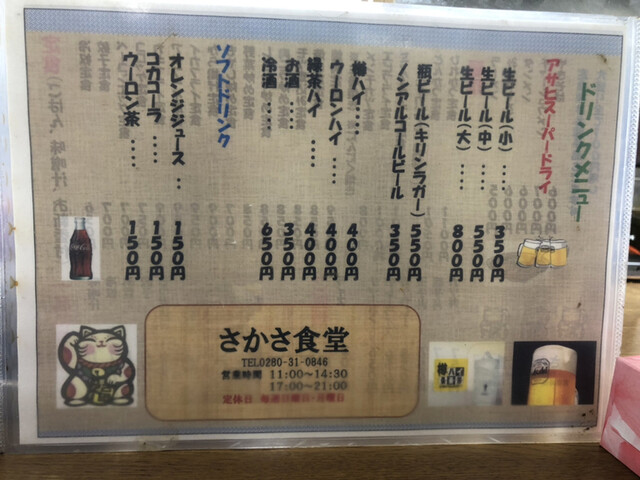 ドリンクメニュー
アサヒスーパードライ
生ビール(小)‥‥ 350円
生ビール(中)‥‥ 550円
生ビール(大)‥‥ 800円
瓶ビール(キリンラガー) 550円
ノンアルコールビール 350円
樽ハイ‥‥ 400円
ウーロンハイ‥‥ 400円
緑茶ハイ‥‥ 400円
お酒‥‥ 350円
冷酒‥‥ 650円
ソフトドリンク
オレンジジュース‥ 150円
コカコーラ‥‥ 150円
ウーロン茶‥‥ 150円
さかさ食堂
TEL0280-31-0846
営業時間 11:00～14:30
17:00～21:00
定休日 毎週日曜日・月曜日
樽ハイ